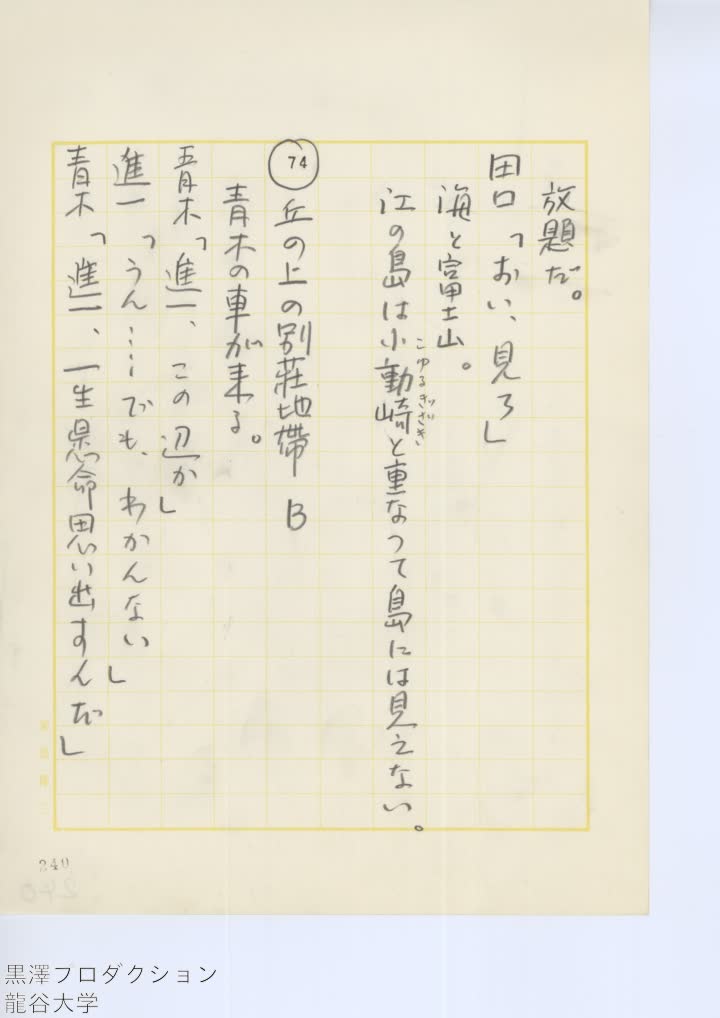 放題だ。
田口「おい、見ろ」
海と富士山。
江の島は小動崎と重なって島には見えない。
こゆるぎざき
74
丘の上の別荘地帯 B
青木の車が来る。
青木「進一、この辺か」
進一「うん……でも、わかんない」
青木「進一、一生懸命思い出すんだ」
240
黒澤プロダクション
龍谷大学